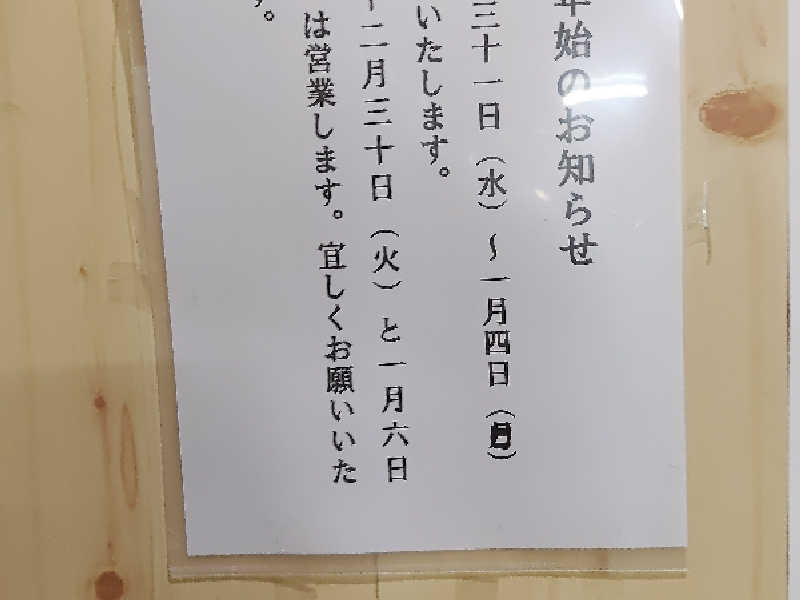 年始のお知らせ
三十一日（水）～一月四日（日）
いたします。
十二月三十日（火）と一月六日
は営業します。宜しくお願いいた
す。